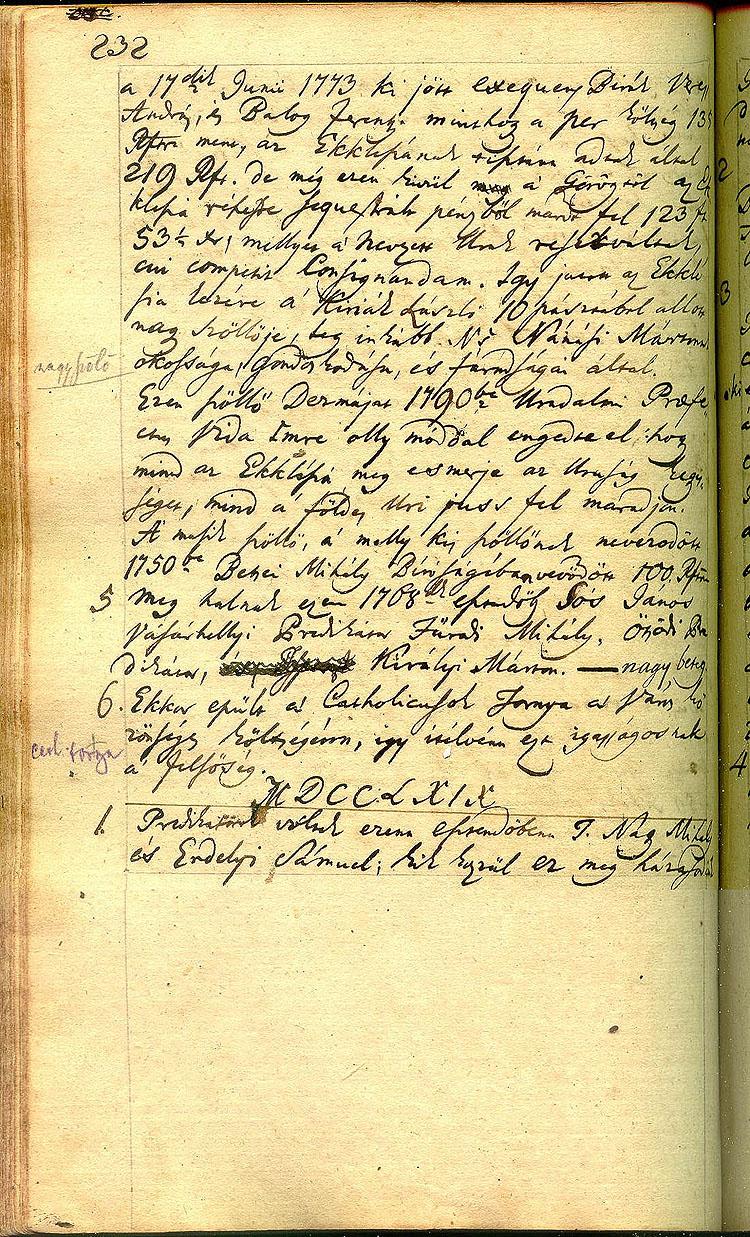 232
a 17dik Junii 1773 ki jött exequens Birák Veres
András, és Balog Ferentz. minthogy a per költség 135
Rftra ment, az Ekklesiának tisztán adtak által
219 Rft. de még ezen kivül a Görögtöl az Ek
klesia részére sequestrált pénzböl maradt fel 123 ft
53½ xr, mellyet a Nevezett Urak
cui competit Consignandam. Igy jutott az Ekkle
sia kezére a Kiriák László 10 pásztából álló
nagy szöllöje, leg inkább Ns Nánási Márton
nagy szölö
okossága, gondoskodása, és fáradsága által.
Ezen szöllö Dezmáját 1790be Uradalmi Præfe
ctus Vida Imre olly móddal engedte el, hogy
mind az Ekklesia meg esmerje az Uraság kegy
ségét, mind a földes Uri juss fel maradjon.
A másik szöllö, a melly kis szöllönek neveződött
1750be Betsei Mihály Biróságában vevödött 100 Rfton
5 Meg halnak ezen 1768dik esztendöb Sós János
Vásárhellyi Predikátor Füredi Mihály, Ötödi Pre
dikátor, Királyi Márton. — nagy beteg
6. Ekkor epült a Catholicusok Tornya a Város kö
zönséges költségénn, igy itélvén ezt igasságosnak
cath. tornya
a Felsöség.
MDCCLXIX
1. Predikátorok vóltak ezenn esztendöbenn T. Nagy Mihály
és Erdelyi Sámuel; kik közül ez meg házasodik